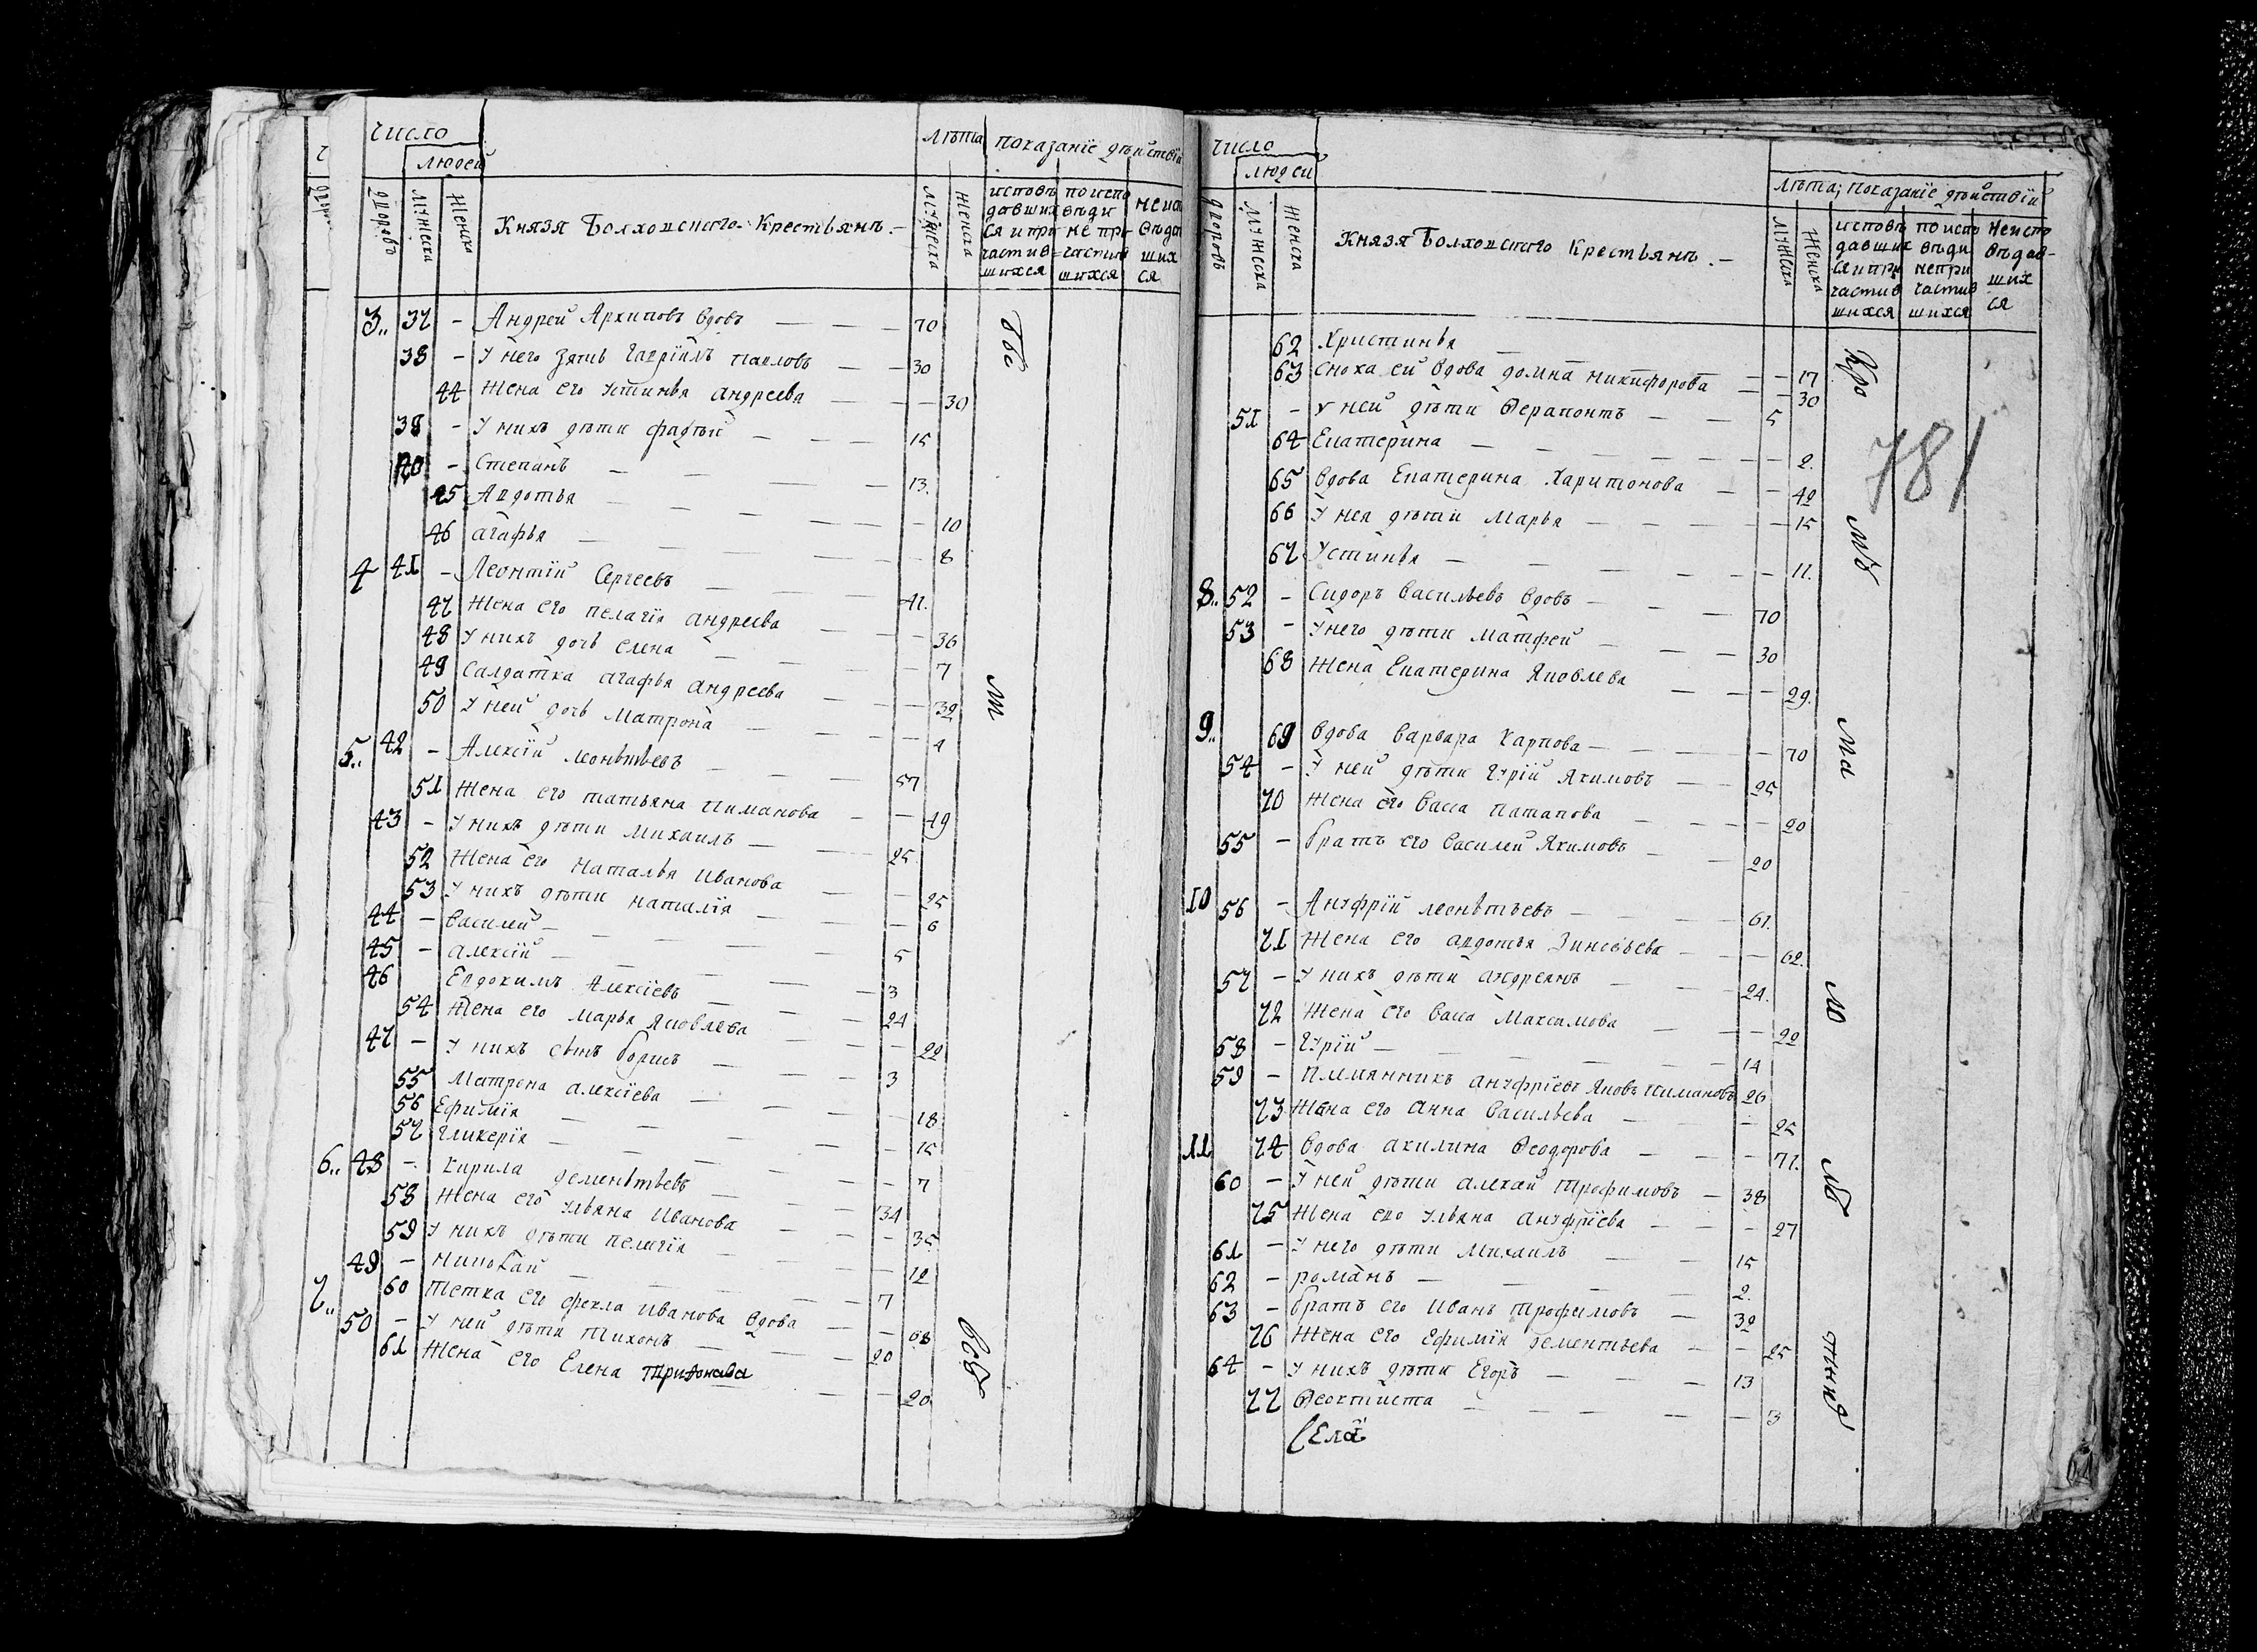 число
людей
лѣта показанїе дѣйствїи
дворовъ
мужеска
женска
Князя Болховскаго Крестьянъ.-
мужеска
женска
исповѣ по испо неис
давших вѣди вѣда
ся и при не при ших
частив частив ся
шихся шихся
3.. 37 - Андрей Архиповъ вдовъ - - - 70
38 - У него зять Гаврїилъ павловъ - - 30
44 Жена его устинья андреева - - 30
38 - У нихъ дѣти фадѣй - - - 15
40 - Степанъ - - - 13.
45 Авдотья - - - 10
46 агафья - - - 8
4 41 - Леонтїй Сергеевъ - - - 41.
47 Жена его пелагїя андреева - - 36
48 У нихъ дочь елена - - - 7
49 Салдатка агафья андреева - - 32
50 У ней дочь матрона - - - 4
5.. 42 - Алексїй леонтьевъ - - - 57
51 Жена его татьяна пиманова - - 49
43 - У нихъ дѣти михаилъ - - 25
52 Жена его наталья иванова - - 25
53 У нихъ дѣти наталїя - - 6
44 - василей - - - 5
45 - алексїй - - - 3
46 Евдокимъ Алексїевъ - - 24
54 Жена его марья яковлева - - 22
47 - У нихъ сынъ борисъ - - 3
55 Матрена алексїева - - - 18
56 Ефимїя - - - 15
57 Гликерїя - - - 7
6.. 48 - кирила дементьевъ - - 34
58 Жена его ульяна иванова - - 35
59 У нихъ дѣти пелагїя - - 12
49 - николай - - - 7
7.. 60 тетка его фекла иванова вдова - - 68
50 - У ней дѣти тихонъ - - 20
61 Жена его Елена - - 20
число
людей
лѣта; показанїе дѣйствїи
дворовъ
мужеска
женска
Князя Болховскаго Крестьянъ.-
мужеска
женска
исповѣ по испо неиспо
давших вѣди вѣдав-
ся и при непри ших
частив частив ся
шихся шихся
62 Христинья - - - 17
63 Сноха ей вдова домна никифорова - - 30
51 - У ней дѣти Ѳерапонтъ - - 5
64 Екатерина - - - 2.
65 вдова Екатерина Харитонова - - 42
66 У нея дѣти Марья - - - 15
67 Устинья - - - 11.
8.. 52 - Сидоръ васильевъ вдовъ - - 70
53 - У него дѣти матфей - - 30
68 Жена Екатерина яковлева - - 29.
9.. 69 вдова варвара карпова - - 70
54 - У ней дѣти гурїй якимовъ - - 25
70 Жена его васса патапова - - 20
55 - братъ его василей якимовъ - - 20
10 56 - Ануфрїй леонтьевъ - - 61.
71 Жена его авдотья зиновьева - - 62.
57 - У нихъ дѣти андреянъ - - 24.
72 Жена его васса максимова - - 22
58 - Гурїй - - - 14
59 - племянникъ ануфрїевъ яковъ пимановъ 26
73 Жена его анна васильева - - 25
11 74 вдова акилина Ѳеодорова - - 71.
60 - У ней дѣти алекѣй трофимовъ - 38
75 Жена его ульяна ануфрїева - - 27
61 - У него дѣти михаилъ - - 15
62 - романъ - - - 2.
63 - братъ его иванъ трофимовъ - 32
76 Жена его ефимїя дементьева - - 25
64 - У нихъ дѣти Егоръ - - - 13
77 Ѳеоктиста - - - 3
Села
781